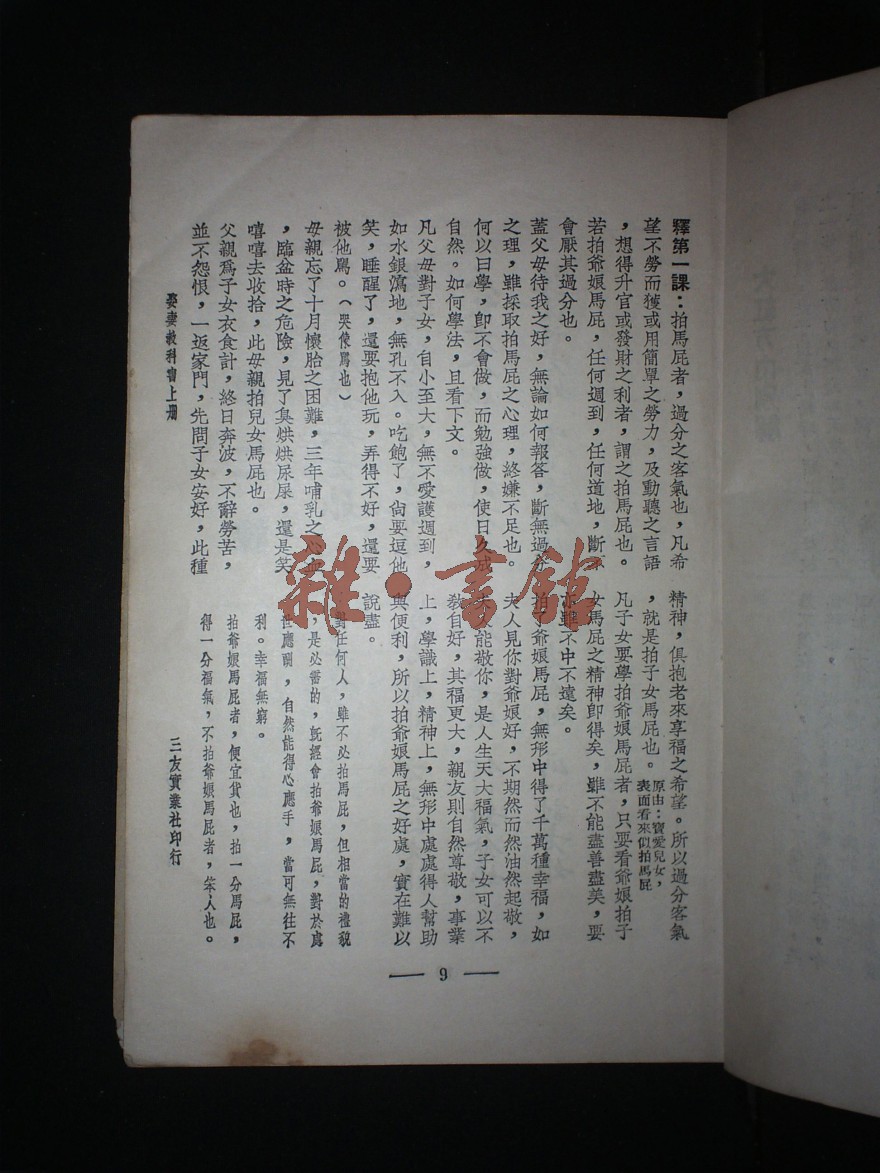 釋第一課：拍馬屁者，過分之客氣也，凡希
望不勞而獲或用簡單之勞力，及動聽之言語
，想得升官或發財之利者，謂之拍馬屁也。
若拍爺娘馬屁，任何週到，任何道地，斷不
會厭其過分也。
蓋父母待我之好，無論如何報答，斷無過分
之理，雖採取拍馬屁之心理，終嫌不足也。
何以曰學，卽不會做，而勉強做，使日久成
自然。如何學法，且看下文。
凡父母對子女，自小至大，無不愛護週到，
如水銀瀉地，無孔不入。吃飽了，尙要逗他
笑，睡醒了，還要抱他玩，弄得不好，還要
被他罵。（哭像罵也）
母親忘了十月懷胎之困難，三年哺乳之心血
，臨盆時之危險，見了臭烘烘尿屎，還是笑
嘻嘻去收拾，此母親拍兒女馬屁也。
父親爲子女衣食計，終日奔波，不辭勞苦，
並不怨恨，一返家門，先問子女安好，此種
精神，俱抱老來享福之希望。所以過分客氣
，就是拍子女馬屁也。
原由：寶愛兒女，
表面看來似拍馬屁
凡子女要學拍爺娘馬屁者，只要看爺娘拍子
女馬屁之精神卽得矣，雖不能盡善盡美，要
亦雖不中不遠矣。
拍了爺娘馬屁，無形中得了千萬種幸福，如
夫人見你對爺娘好，不期然而然油然起敬，
夫人能敬你，是人生天大福氣，子女可以不
敎自好，其福更大，親友則自然尊敬，事業
上，學識上，精神上，無形中處處得人幫助
與便利，所以拍爺娘馬屁之好處，實在難以
說盡。
對任何人，雖不必拍馬屁，但相當的禮貌
，是必需的，旣經會拍爺娘馬屁，對於處
世應酬，自然能得心應手，當可無往不
利。幸福無窮。
拍爺娘馬屁者，便宜貨也，拍一分馬屁，
得一分福氣，不拍爺娘馬屁者，笨人也。
娶妻敎科書上册
三友實業社印行
9
雜·書館